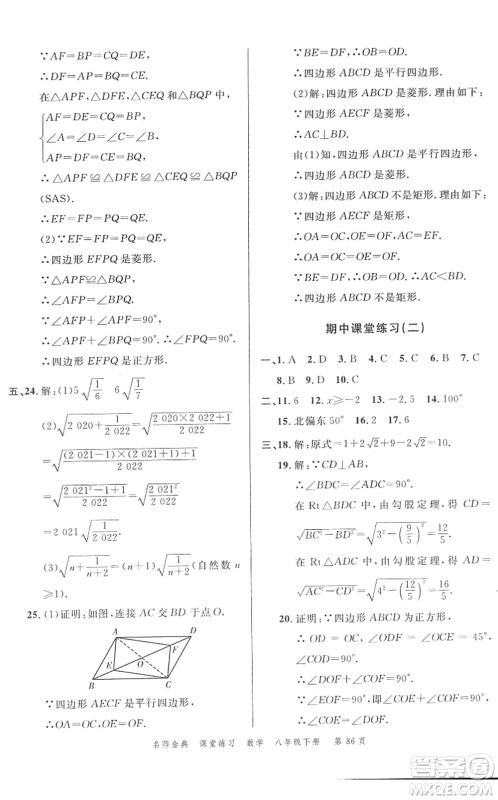 ∵AF=BP=CQ=DE,
∴DF=AP=BQ=CE.
在△APF,△DFE,△CEQ和△BQP中,
AF=DE=CQ=BP,
∠A=∠D=∠C=∠B,
AP=DF=CE=BQ,
∴△APF≌△DFE≌△CEQ≌△BQP
(SAS).
∴EF=FP=PQ=QE.
(2)∵EF=FP=PQ=QE,
∴四边形EFPQ是菱形.
∵△APF≌△BQP,
∴∠AFP=∠BPQ.
∵∠AFP+∠APF=90°,
∴∠APF+∠BPQ=90°.
∴∠FPQ=90°.
∴四边形EFPQ是正方形.
五、24.解:(1)5√(1/6) 6√(1/7)
(2)√(2 020+1/2 022)=√((2 020×2 022+1)/2 022)
=√(((2 021-1)×(2 021+1)+1)/2 022)
=√((2 021²-1+1)/2 022)
=2 021√(1/2 022)
(3)√(n+1/(n+2))=(n+1)√(1/(n+2))(自然数n
≥1).
25.(1)证明:如图,连接AC交BD于点O.
A D
F
O
E
B C
∵四边形AECF是平行四边形,
∴OA=OC,OE=OF.
∵BE=DF,∴OB=OD.
∴四边形ABCD是平行四边形.
(2)解:四边形ABCD是菱形.理由如下:
∵四边形AECF是菱形,
∴AC⊥BD.
由(1)知,四边形ABCD是平行四边形,
∴四边形ABCD是菱形.
(3)解:四边形ABCD不是矩形.理由如下:
∵四边形AECF是矩形,
∴OA=OC=OE=OF.
∵BE=DF,∴OB=OD.∴AC<BD.
∴四边形ABCD不是矩形.
期中课堂练习(二)
一、1.A 2.A 3.D 4.D 5.D 6.C 7.C
8.B 9.D 10.C
二、11.6 12.x≥-2 13.-2.5 14.100°
15.北偏东50° 16.2 17.6
三、18.解:原式=1+2√2+9=10+2√2.
19.解:∵CD⊥AB,
∴∠BDC=∠ADC=90°.
在Rt△BDC中,由勾股定理,得CD=
√(BC²-BD²)=√(3²-(9/5)²)=12/5.
在Rt△ADC中,由勾股定理,得AD=
√(AC²-CD²)=√(4²-(12/5)²)=16/5.
20.证明:∵四边形ABCD为正方形,
∴OD=OC,∠ODF=∠OCE=45°,
∠COD=90°.
∴∠DOF+∠COF=90°.
∵∠EOF=90°,
∴∠COE+∠COF=90°.
名师金典 课堂练习 数学 八年级下册 第86页